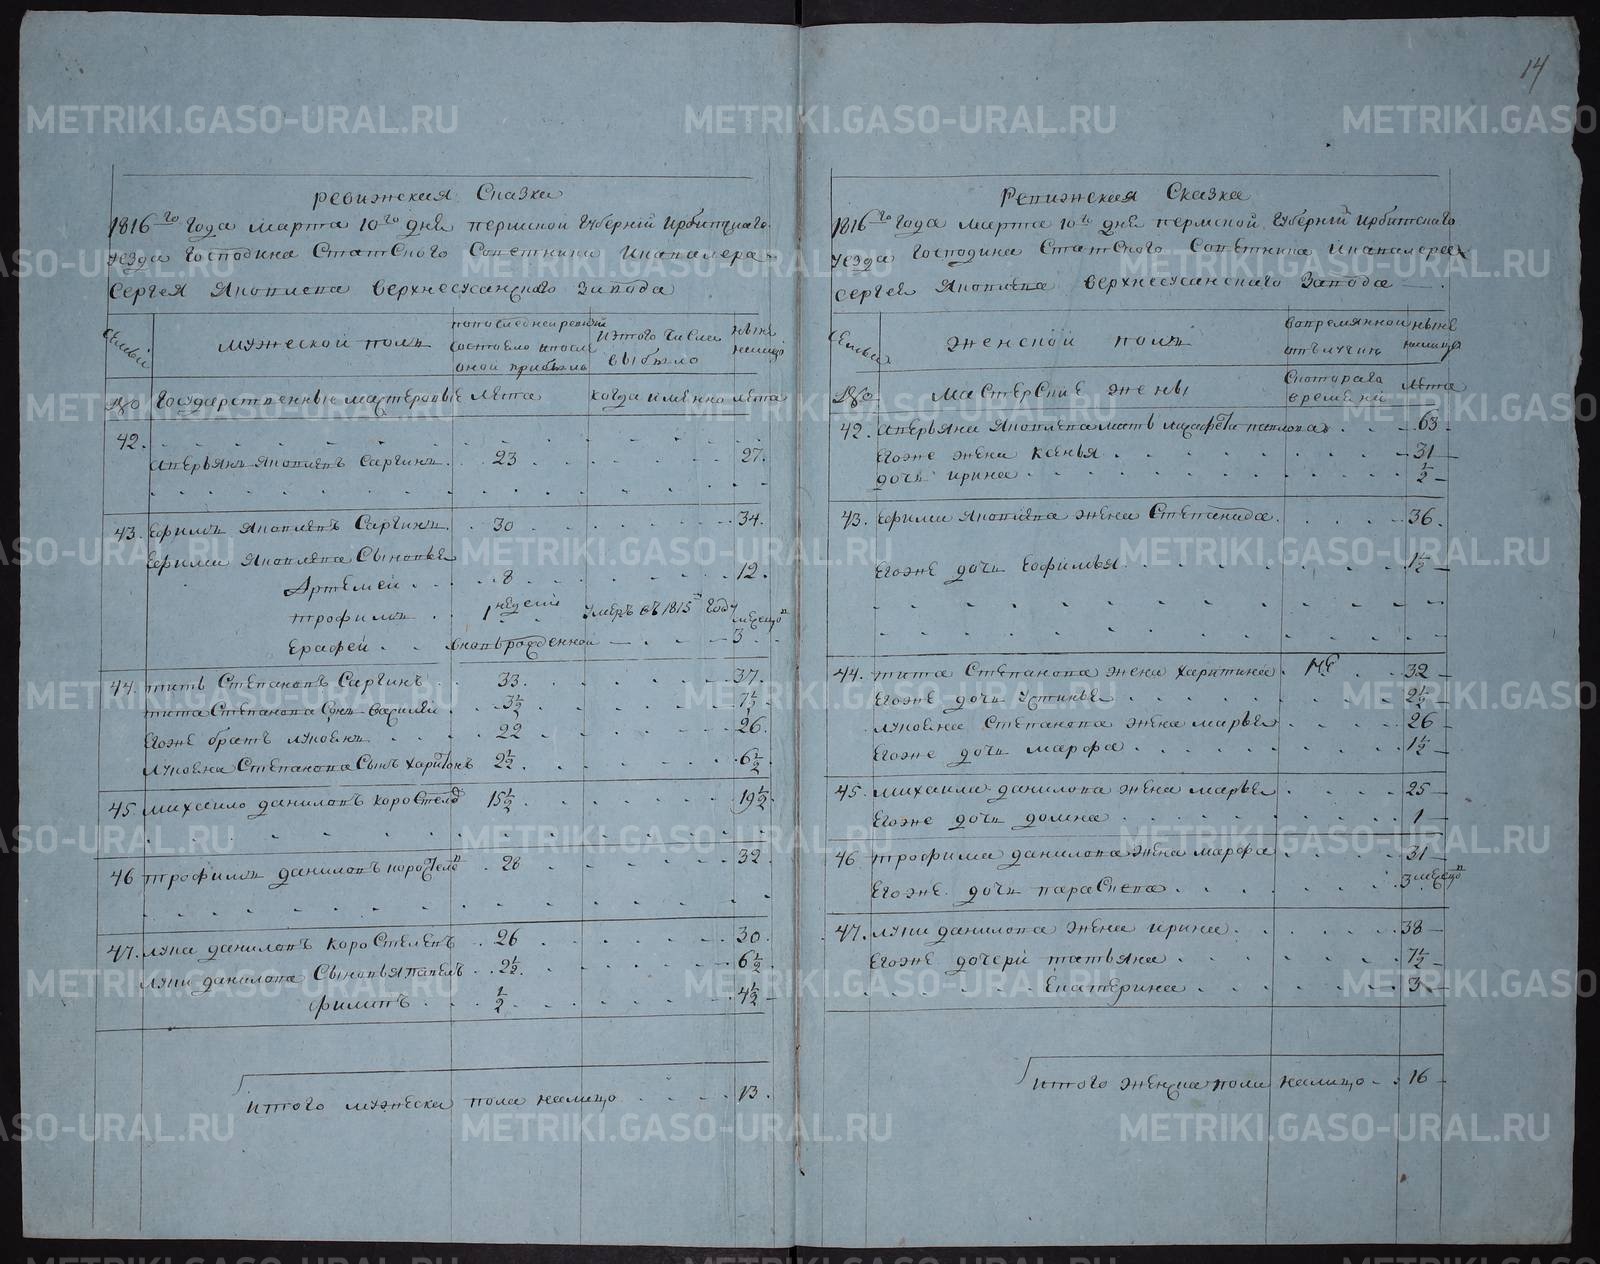 14
ревижская Сказка
1816го Года марта 10го дня пермской Губернии Ирбитцкаго
уезда Господина Статского Советника Икавалера
Сергея Яковлева верхнесусанского Завода
Семьи
мужеской полъ
попоследней ревизии состояло ипосле оной прибыло
Изтого числа выбыло
ныне налицо
№о Государственные мастеровые
лета
когда имянно
лета
42.
Аверьянъ Яковлевъ Саргинъ 23 27.
43. Ефимъ Яковлевъ Саргинъ 30 34.
Ефима Яковлева Сыновья
Артемей 8 12.
трофимъ 1 недели умеръ въ 1815м Году
Ерафей вновьрожденной 3 месяцовъ
44. титъ Степановъ Саргинъ 33. 37.
тита Степанова Сынъ василей 3½ 7½
Егоже братъ луковна 22 26.
луковна Степанова Сынъ харитонъ 2½ 6½
45. михайло даниловъ коростелевъ 15½ 19½
46 трофимъ даниловъ коростелевъ 28 32
47. лука даниловъ коростелевъ 26 30.
луки данилова Сыновья павелъ 2½ 6½
филатъ ½ 4½
Итого мужеска пола налицо 13.
Ревижская Сказка
1816го Года марта 10го дня пермской Губернии Ирбитского
уезда Господина Статского Советника Икавалера
Сергея Яковлева верхнесусанского Завода
Семьи
женской полъ
вовременной отлучке
ныне налицо
№о мастерские жены
Скотораго времени
лета
42. Аверьяна Яковлева мать марфа павлова 63
Егоже жена ксенья 31
дочь ирина ½
43. Ефима Яковлева жена Степанида 36.
Егоже дочь Еофимья 1½
44. тита Степанова жена харитина 32
Егоже дочь устинья 2½
луковна Степанова жена марья 26
Егоже дочь марфа 1½
45. михаила данилова жена марья 25
Егоже дочь домна 1
46 трофима данилова жена марфа 31
Егоже дочь парасковья 3 месяцовъ
47. луки данилова жена ирина 38
Егоже дочери татьяна 7½
Екатерина 3
Итого женска пола налицо 16
METRIKI.GASO-URAL.RU